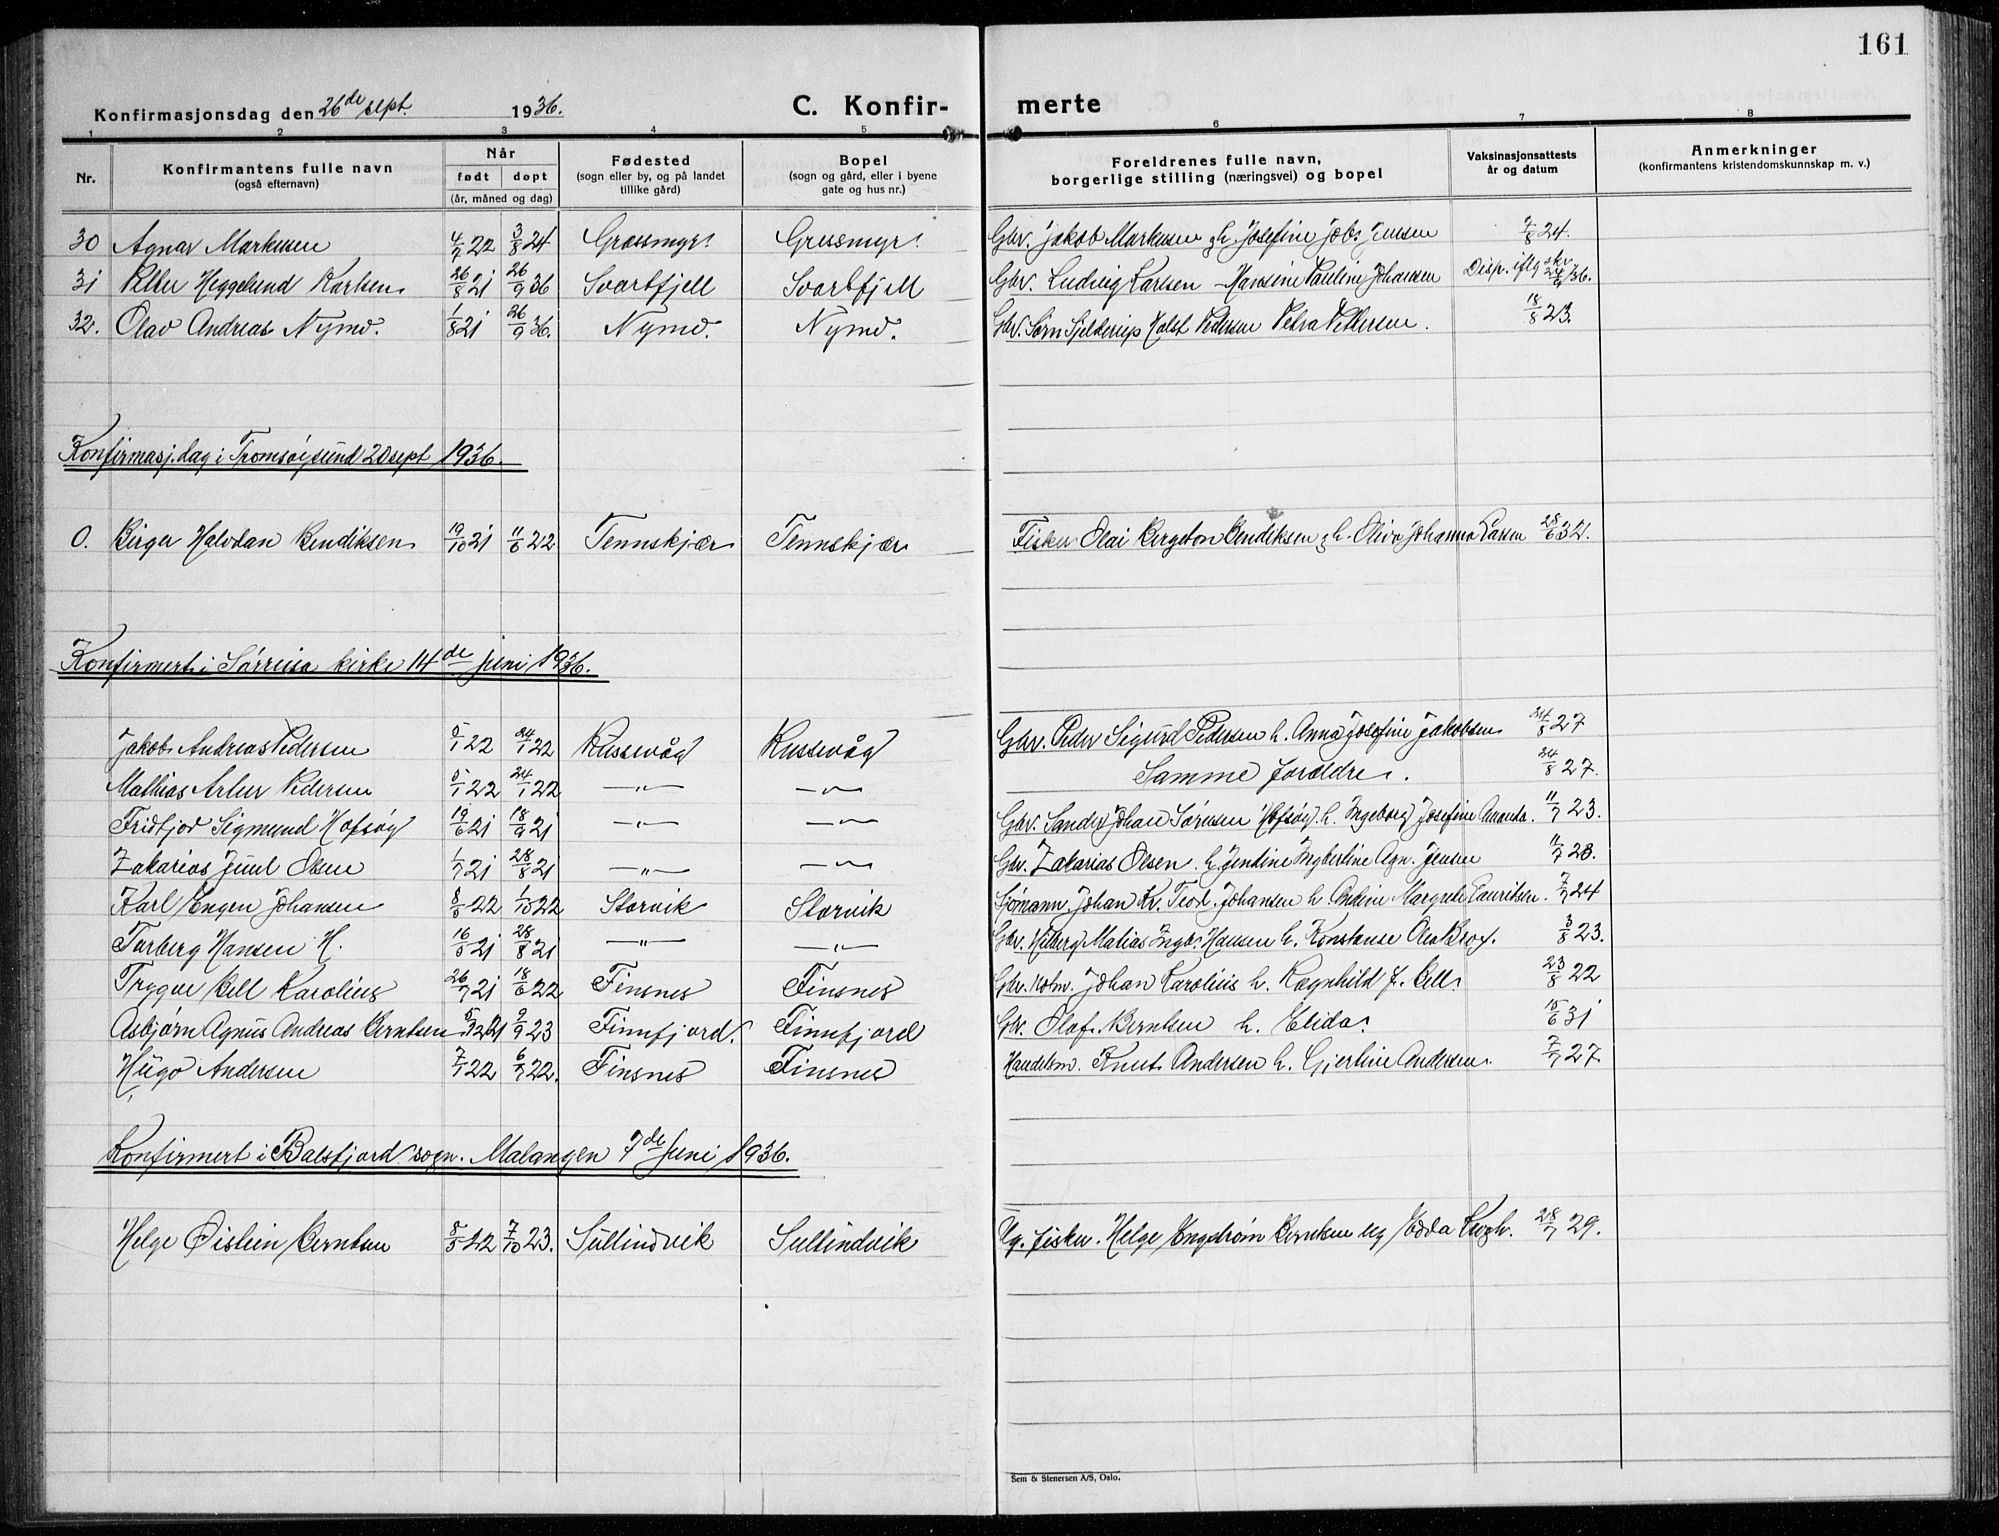 161
Konfirmasjonsdag den 26de sept. 1936.
C. Konfir-
merte
1 2 3 4 5 6 7 8
Nr.
Konfirmantens fulle navn
(også efternavn)
Når
født døpt
(år, måned og dag)
Fødested
(sogn eller by, og på landet
tillike gård)
Bopel
(sogn og gård, eller i byene
gate og hus nr.)
Foreldrenes fulle navn,
borgerlige stilling (næringsvei) og bopel
Vaksinasjonsattests
år og datum
Anmerkninger
(konfirmantens kristendomskunnskap m. v.)
30 Agnar Markusen 4/7 22 3/8 24 Grassmyr Grassmyr Gbr. Jakob Markusen og h. Josefine Jensen 7/8 24.
31 Peder Heggelund Karlsen 26/8 21 26/9 36 Svartfjell Svartfjell Gbr. Ludvig Karlsen - Hansine Pauline Johansen Disp. iflg skr 24/9 36.
32. Olav Andreas Nymo. 1/8 21 26/9 36. Nymo. Nymo. Gbr. Sørn Sjelderup Holst Pedersen Petra Pettersen. 18/8 23.
Konfirmasj.dag i Tromsøysund 20 sept 1936.
0. Birger Halvdan Bendiksen 19/10 21 11/6 22 Tennskjær Tennskjær Fisker Olai Bergeton Bendiksen og h. Johanna Larsen 28/6 32.
Konfirmert i Sørreisa kirke 14de juni 1936.
Jakob Andreas Pedersen 5/1 22 24/1 22 Russevåg Russevåg Gbr. Peder Sigurd Pedersen h. Anna Josefine Jakobsen 24/8 27
Mathias Artur Pedersen 5/1 22 24/1 22 —"— —"— Samme foreldre. 24/8 27.
Fridtjov Sigmund Hofsøy 19/6 21 18/9 21 —"— —"— Gbr. Sander Johan Sørensen Hofsøy h. Ingeborg Josefine Amanda. 11/7 23.
Zakarias Juul Olsen 1/7 21 28/8 21 —"— —"— Gbr. Zakarias Olsen h. Jendine Ingberline Agn. Jensen 11/7 23.
Karl Eugen Johansen 8/5 22 1/10 22 Storvik Storvik Sjømann Johan Kr. Teod. Johansen h Andine Margrete Lauritsen. 7/7 24
Torberg Hansen H. 16/5 21 28/8 21 —"— —"— Gbr. Hilberg Matias Ingb. Hansen h. Konstanse Brox. 3/8 23.
Trygve Bell Karolius 26/7 21 18/6 22 Finsnes Finsnes Gbr. Johan Karolius h. Ragnhild f. Bell. 23/8 22
Asbjørn Agnus Andreas Berntsen 5/9 21 9/9 23 Finnfjord. Finnfjord Gbr. Olaf Berntsen h. Elida. 15/6 31
Hugo Andersen 7/1 22 6/7 22. Finsnes Finsnes Handelsm. Knut Andersen h. Gjertine Andersen. 7/7 27.
Konfirmert i Balsfjord sogn. Malangen 7de juni 1936.
Helge Øistein Berntsen 5/5 22 7/10 23. Sultindvik Sultindvik Ug. fisker. Helge Engstrøm Berntsen og Edda 28/7 29.
Sem & Stenersen A/S, Oslo.